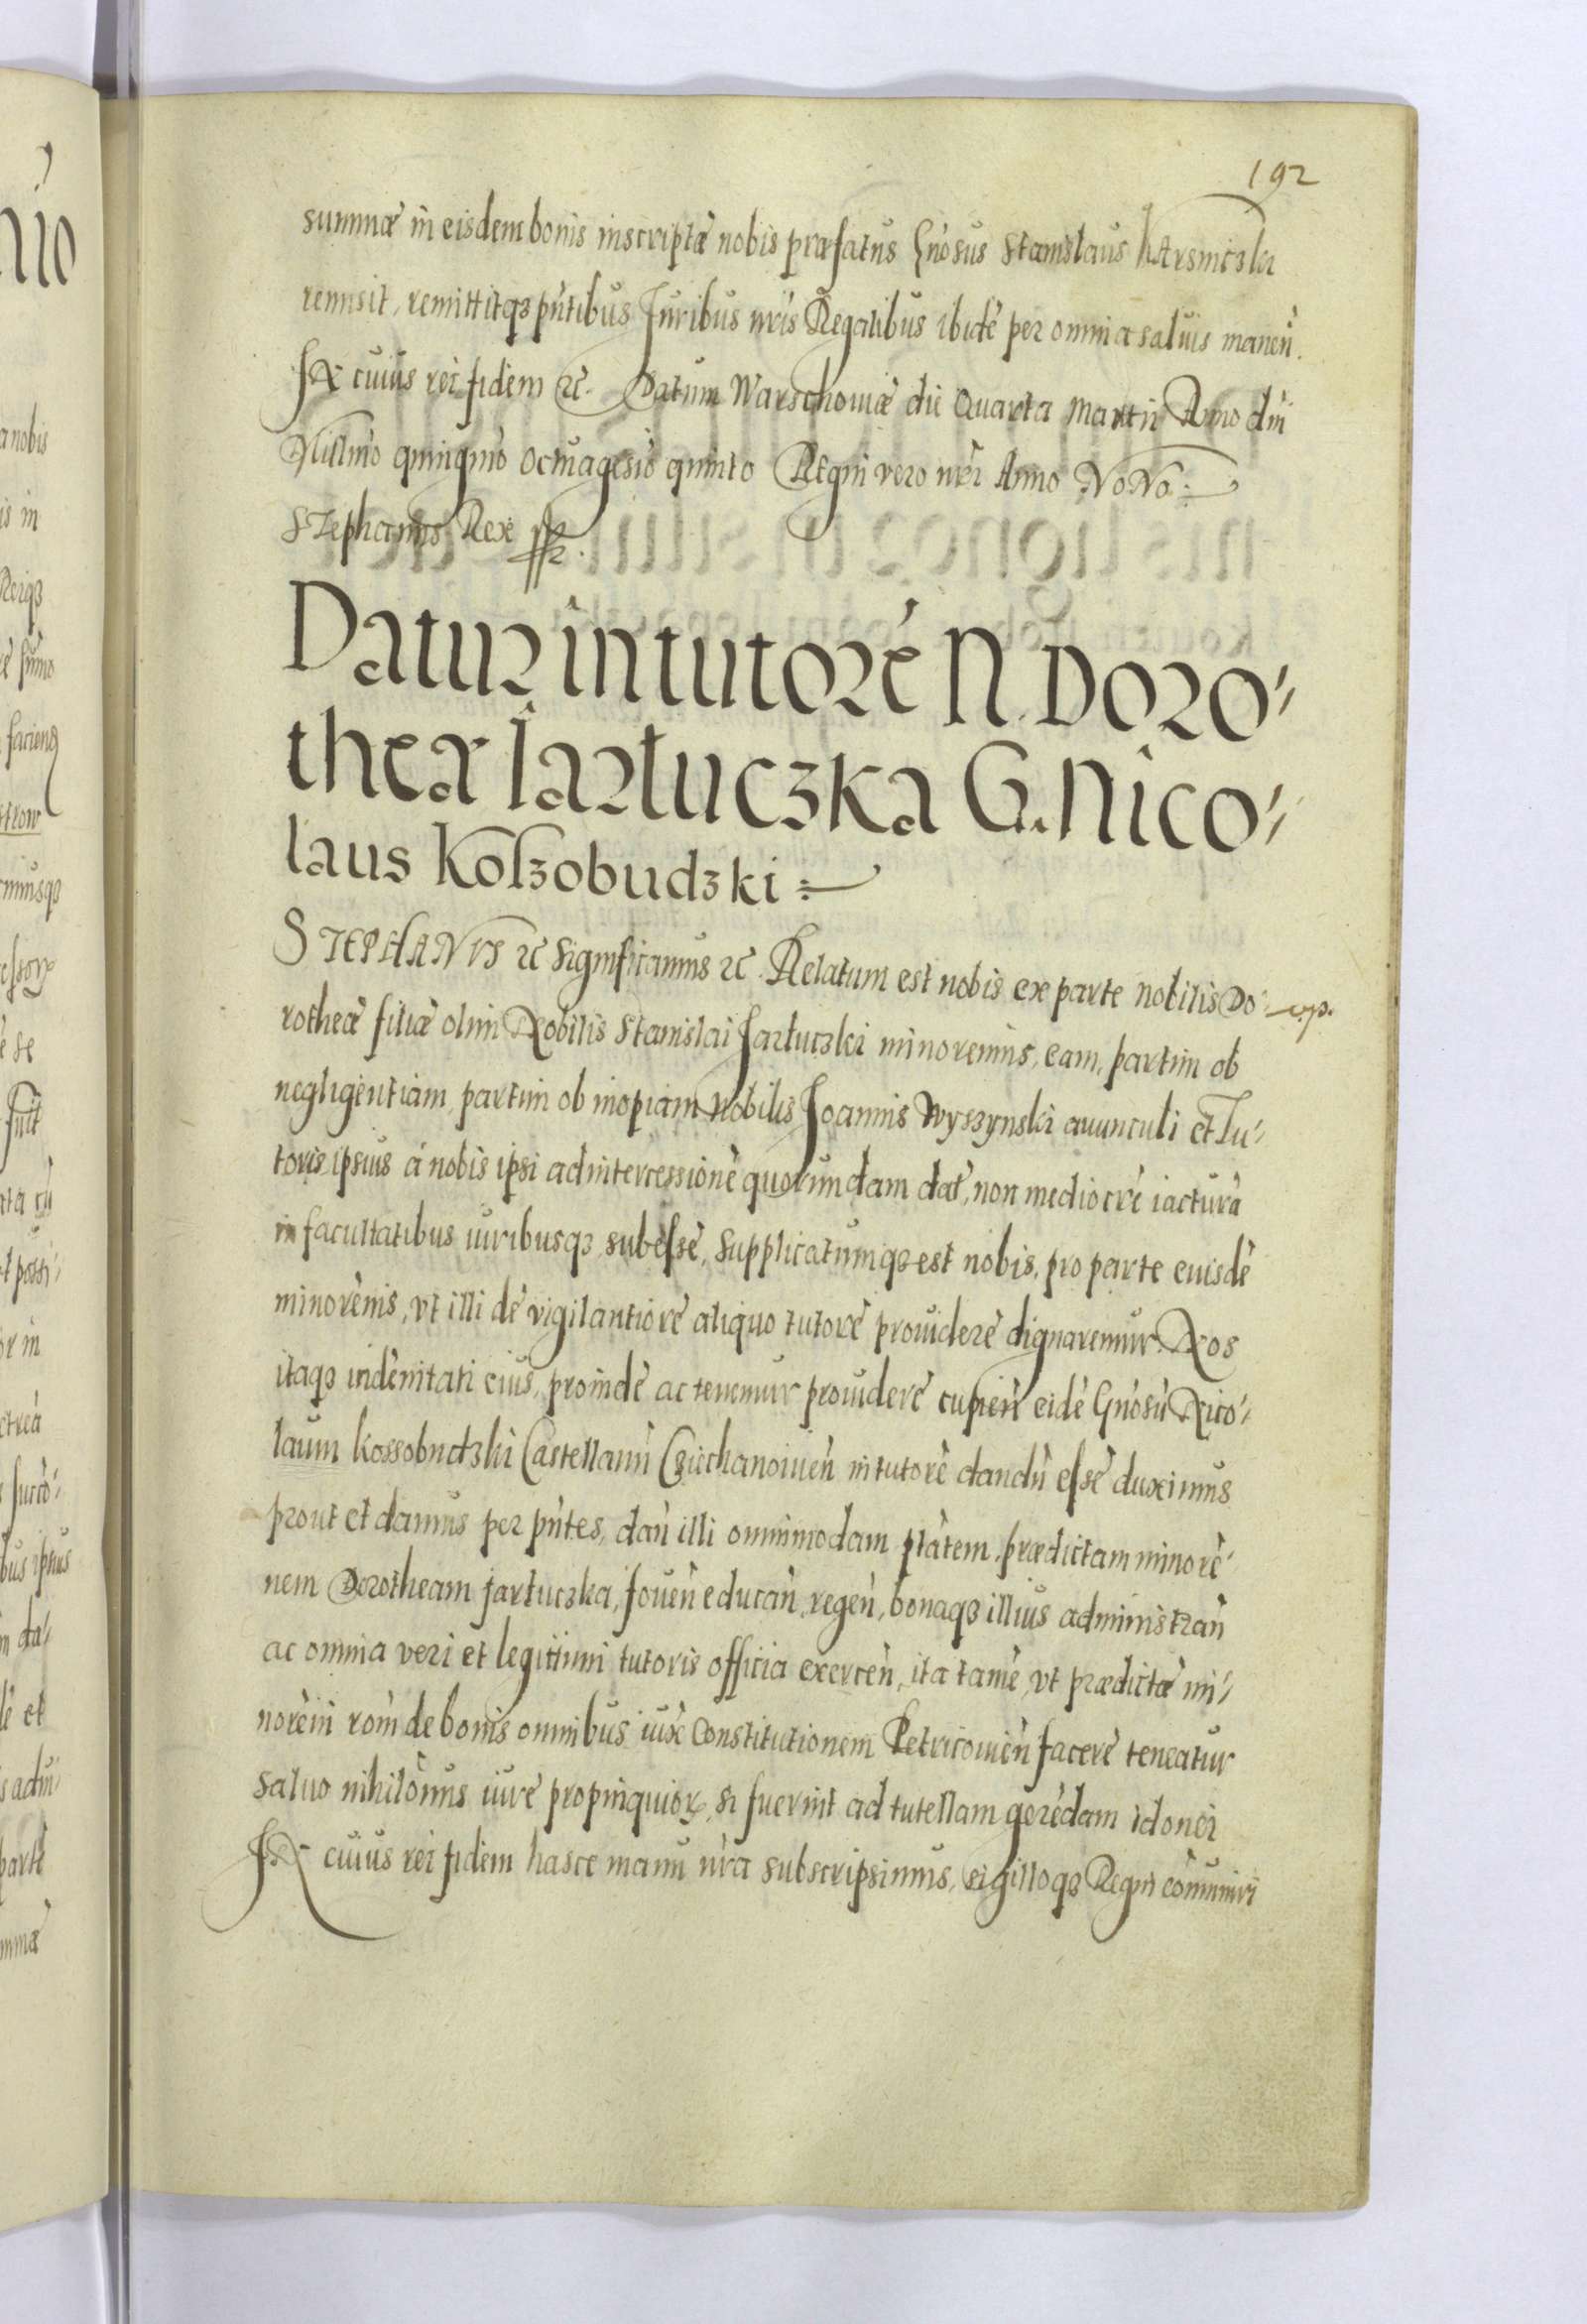 192
summæ in eisdem bonis inscriptæ nobis præfatus Gnosus Stanislaus Karsniczki
remisit, remittitqȝ pntibus Juribus nris Regalibus ibidē per omnia saluis manen̄.
In cuius rei fidem ꝛc. Datum Warschouiæ die Quarta Martii Anno dni
Millmo quingmo Octuagesio quinto Regni vero nri Anno Nono
Stephanus Rex
Datur in tutorē N. Doro-
theæ Jarluczka G. Nico-
laus Kossobudzki
STEPHANVS ꝛc Significamus ꝛc. Relatum est nobis ex parte nobilis Do-
rotheæ filiæ olim Nobilis Stanislai Jarluczki minorennis, eam, partim ob
negligentiam, partim ob inopiam Nobilis Joannis Wyszynski auunculi et Tu-
toris ipsius á nobis ipsi ad intercessionē quorundam dat, non mediocrē iacturā
in facultatibus iuribusqȝ subesse, supplicatumqȝ est nobis, pro parte eiusdē
minorēnis, vt illi de vigilantiore aliquo tutore prouidere dignaremur. Nos
itaqȝ indēnitati eius, proinde ac tenemur prouidere cupien̄ eidē Gnosū Nico-
laum Kossobudzki Castellanū Cziechanouien̄ in tutorē dandū esse duximus
prout et damus per pntes, dan̄ illi omnimodam ptātem, prædictam minorē-
nem Dorotheam Jarluczka, fouen̄ educan̄, regen̄, bonaqȝ illius administran̄
ac omnia veri et legitimi tutoris officia exercen̄, ita tamē, vt prædictæ mi-
norēni rōm de bonis omnibus iuxē Constitutionem Petricouien̄ facere teneatur
saluo nihilōmus iure propinquioꝝ, si fuerint ad tutellam gerēdam idonei
In cuius rei fidem hasce manu nra subscripsimus, sigilloqȝ Regni cōmuniri